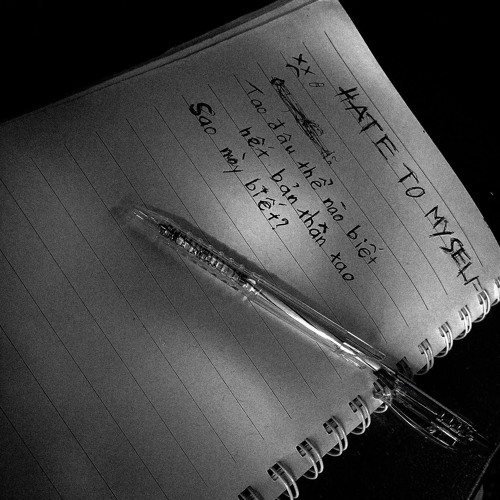 HATE TO MYSELF
Tao đâu thể nào biết
hết bản thân tao
Sao mày biết?